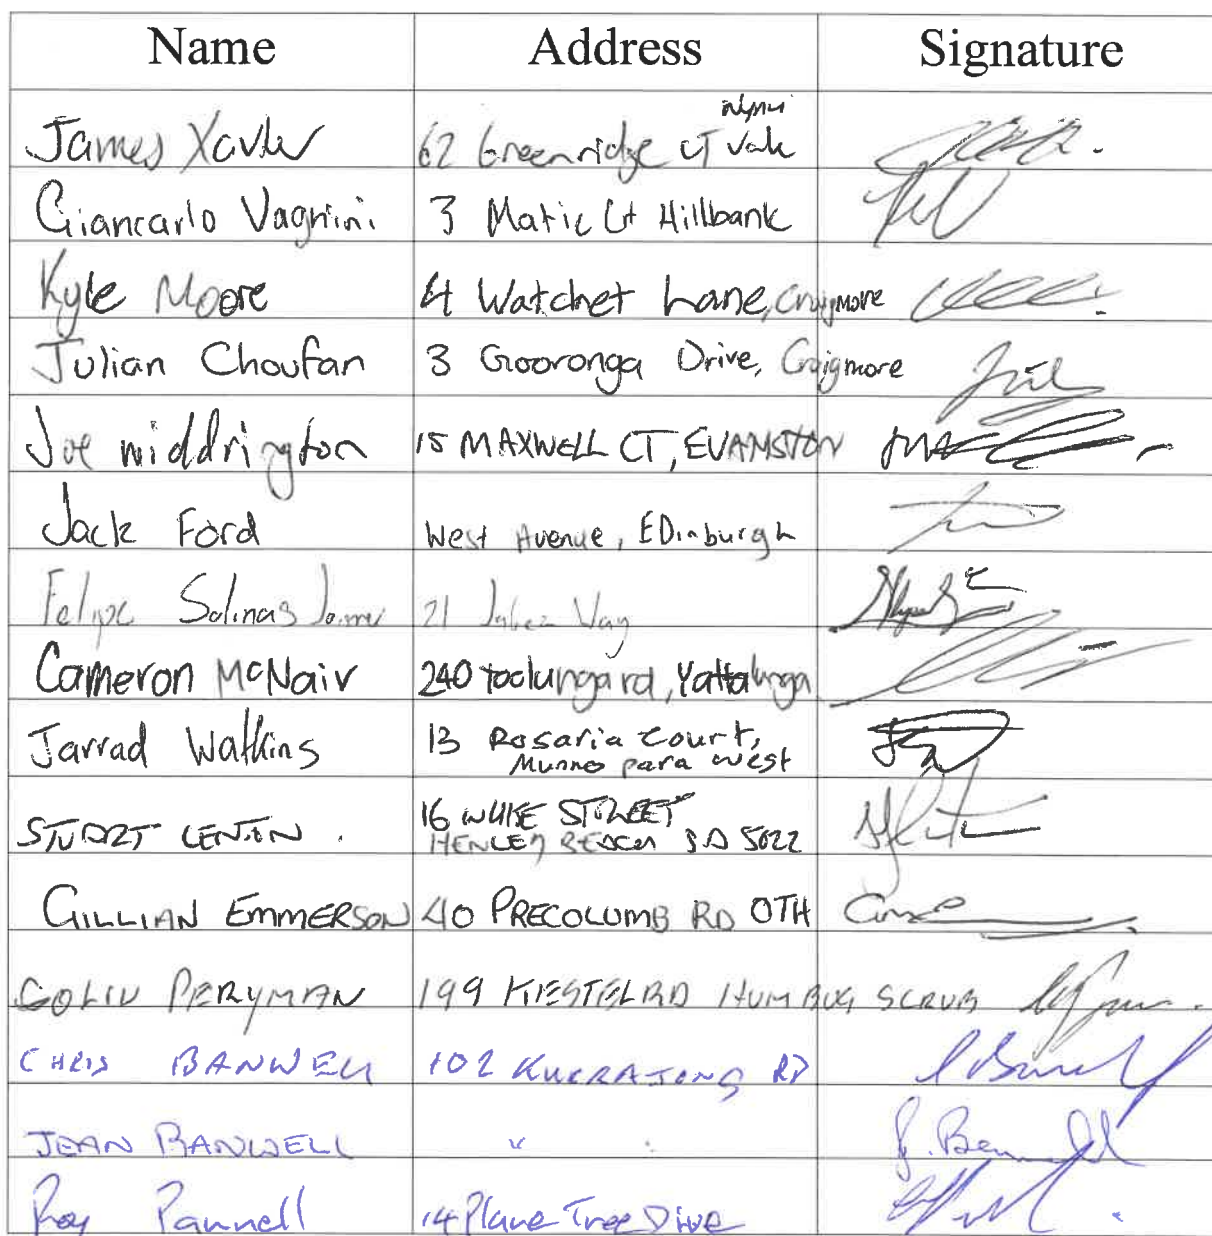 Name Address Signature
James Xavier 62 Greenridge CT Vale
Giancarlo Vagnini 3 Matic Ct Hillbank
Kyle Moore 4 Watchet Lane, Craigmore
Julian Choufan 3 Gooronga Drive, Craigmore
Joe middrington 15 MAXWELL CT, EVAMSTON
Jack Ford West Avenue, EDinburgh
Felipe Salinas 21 Jabez Way
Cameron McNair 240 , Yattalunga
Jarrad Watkins 13 Rosaria Court,
Munno para west
STUART 16 STREET
HENLEY BEACH SA 5022
GILLIAN EMMERSON 40 PRECOLUMB RD OTH
COLIN PERYMAN 199 KIESTEL RD HUMBUG SCRUB
CHRIS BANWELL 102 KURRAJONG RD
JEAN BANWELL " "
J. Banwell
Roy Pannell 14 Plane Tree Drive